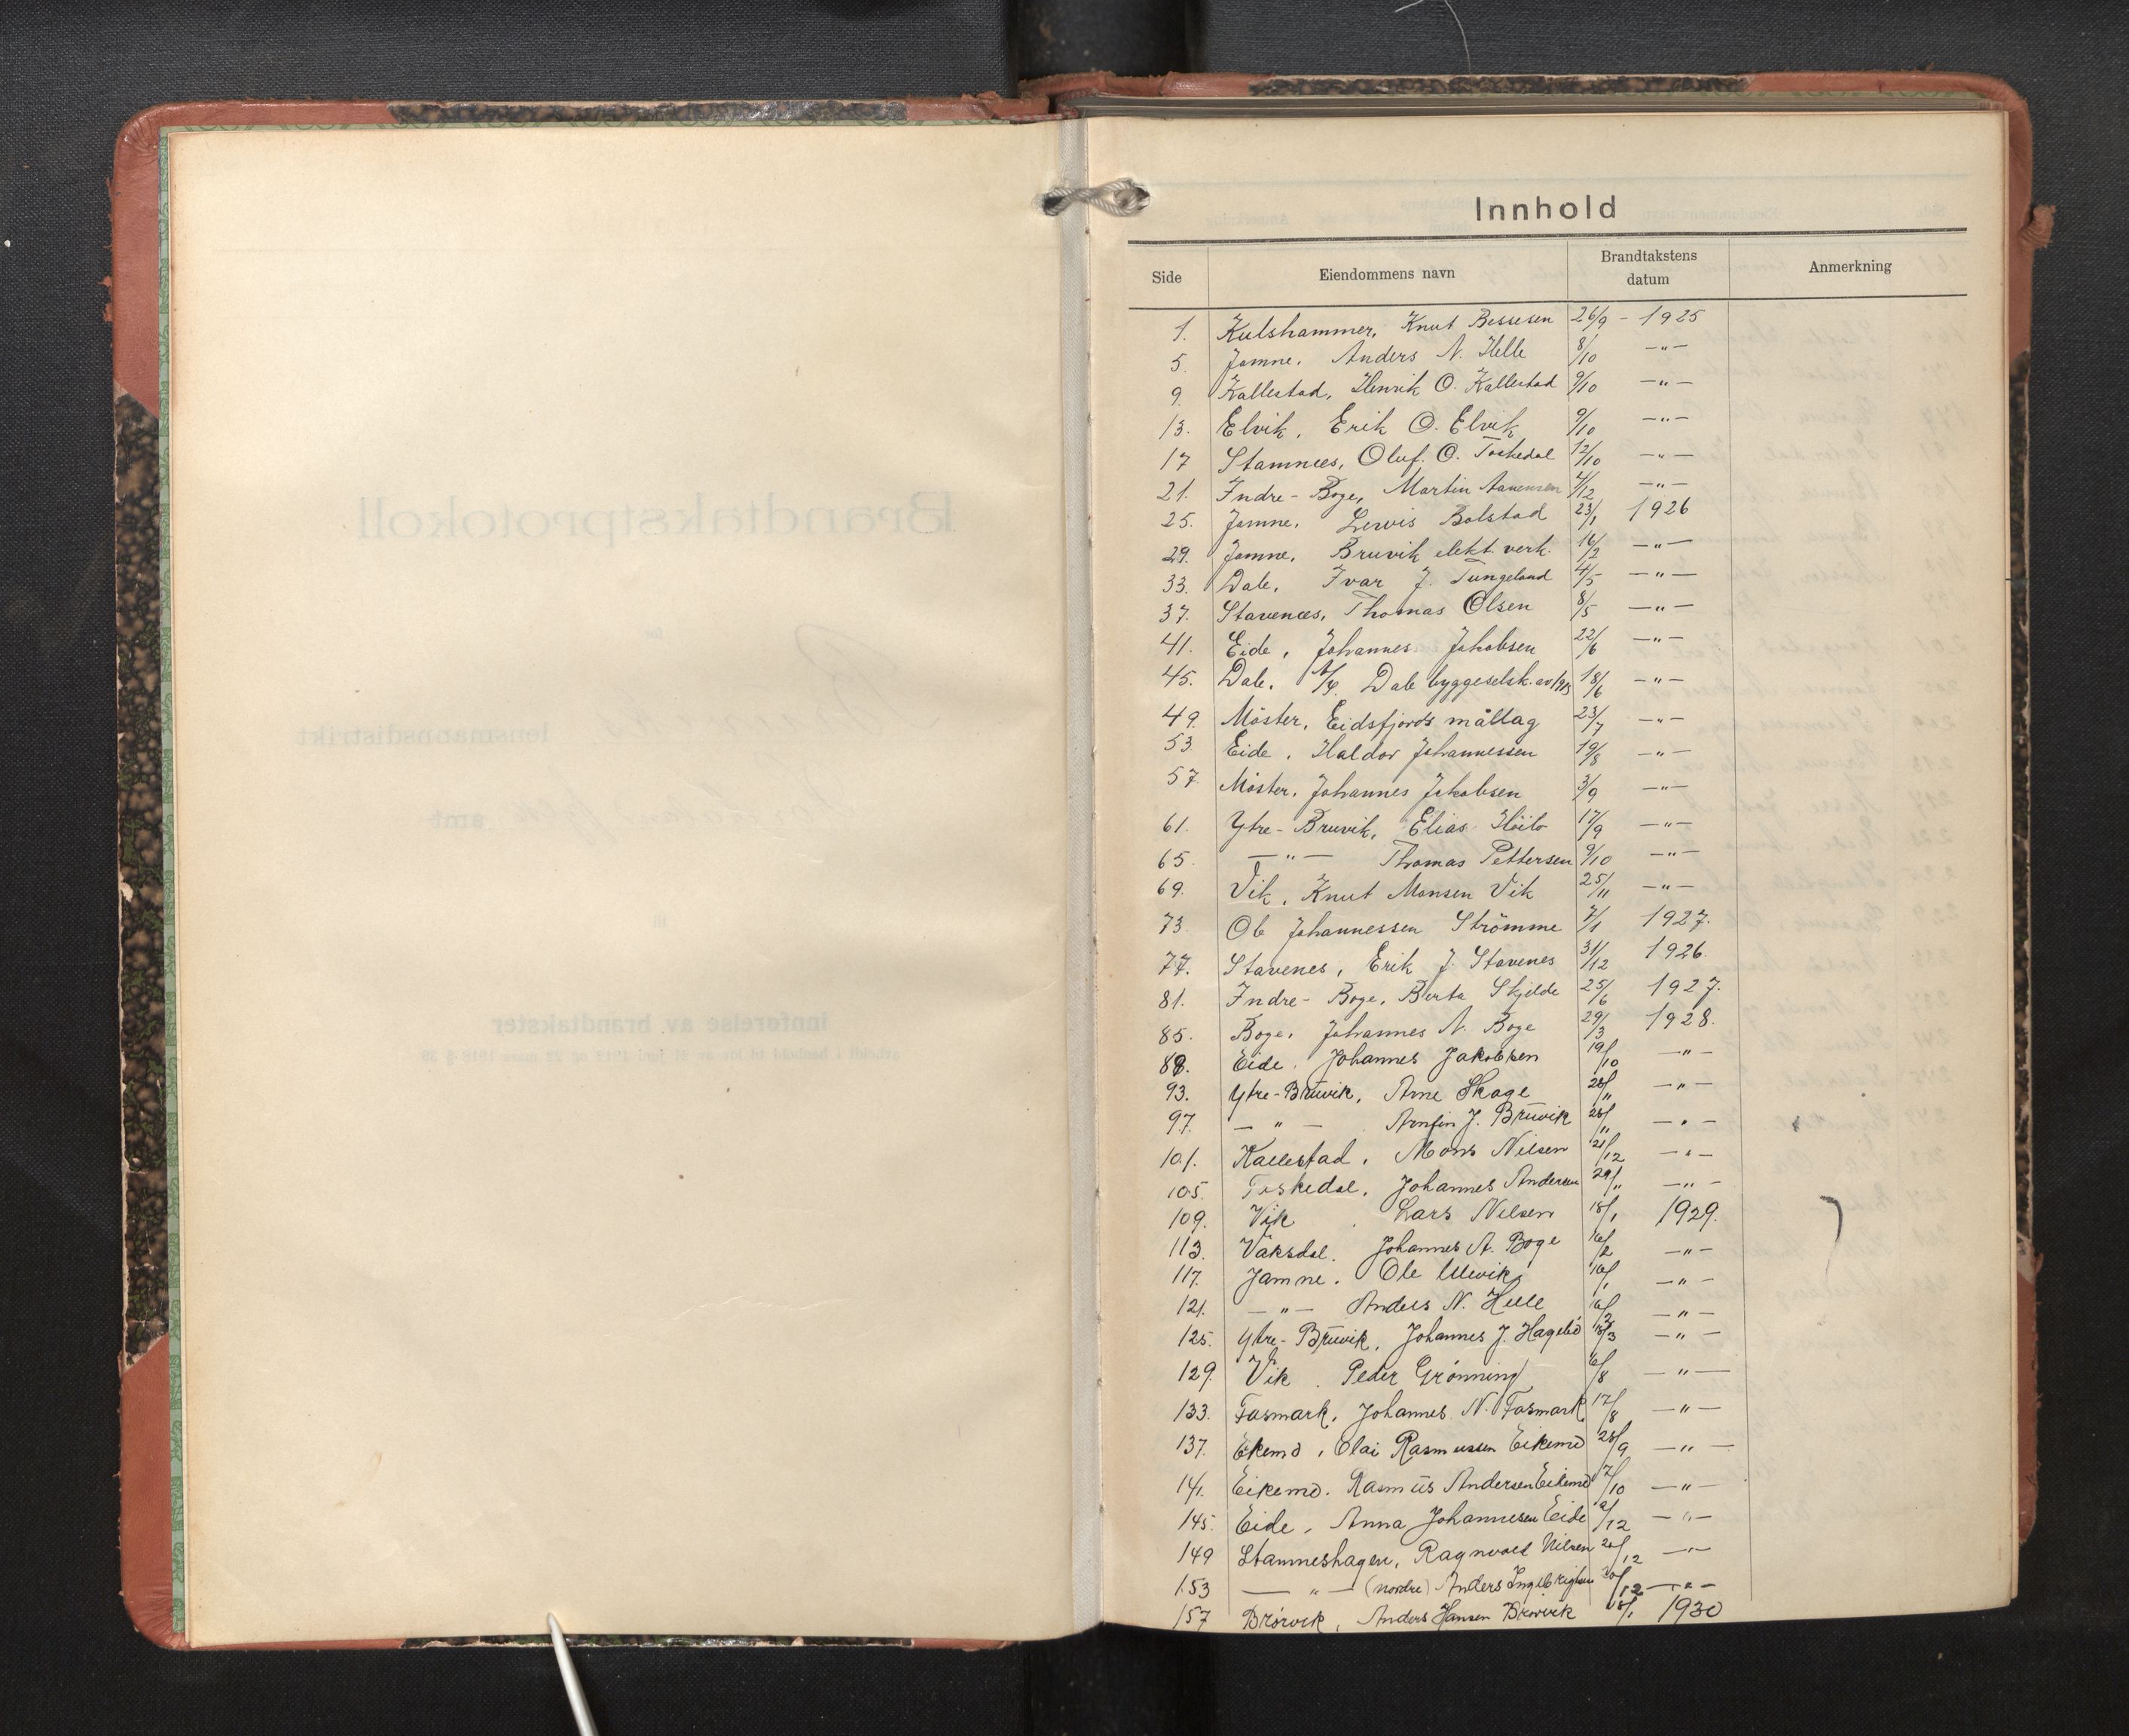 Innhold
Side Eiendommens navn Brandtakstens datum Anmerkning
1. Kulshammer, Knut Bessesen 26/9 - 1925
5. Jamne, Anders N. Helle 8/10 -"-
9. Kallestad, Henrik O. Kallestad 9/10 -"-
13. Elvik, Erik O. Elvik 9/10 -"-
17 Stamnes, Oluf. O. Toskedal 12/10 -"-
21. Indre-Boge, Martin 4/12 -"-
25. Jamne, Lewis Bolstad 23/1 1926
29. Jamne, Bruvik elekt. verk. 16/2 -"-
33. Dale, Ivar J. Tungeland 4/5 -"-
37. Stavenes, Thomas Olsen 8/5 -"-
41. Eide, Johannes Jakobsen 22/6 -"-
45. Dale, Dale byggeselsk. av 18/6 -"-
49. Möster, Eidsfjords mållag 23/7 -"-
53. Eide, Haldor Johannessen 19/8 -"-
57. Möster, Johannes Jakobsen 3/9 -"-
61. Ytre-Bruvik, Elias 17/9 -"-
65. -"- Thomas Pettersen 9/10 -"-
69. Vik, Knut Monsen Vik 25/11 -"-
73. Ole Johannessen Strömme 7/1 1927.
77. Stavenes, Erik J. Stavenes 31/12 1926.
81. Indre-Boge, Berta Skjelde 25/6 1927.
85. Boge, Johannes N. Boge 29/3 1928.
89. Eide, Johannes Jakobsen 19/10 -"-
93. Ytre-Bruvik, Arne Skage 28/11 -"-
97. -"- Arnfin J. Bruvik 28/11 -"-
101. Kallestad, Mons Nilsen 21/12 -"-
105. Toskedal, Johannes Andersen 29/11 -"-
109. Vik Lars Nilsen 18/1 1929.
113. Vaksdal. Johannes A. Boge 16/2 -"-
117. Jamne. Ole Ulvik 16/1 -"-
121. -"- Anders N. Helle 16/2 -"-
125. Ytre-Bruvik, Johannes J. 18/3 -"-
129. Vik. Peder Grønning 6/8 -"-
133. Fosmark, Johannes N. Fosmark 17/8 -"-
137. Eikemo, Olai Rasmussen Eikemo 28/9 -"-
141. Eikemo. Rasmus Andersen Eikemo 7/10 -"-
145. Eide, Anna Johannesen Eide 9/12 -"-
149 Stamneshagen, Ragnvald Nilsen 20/12 -"-
153 -"- (nordre) Anders Ingebrigtsen 20/12 -"-
157 Brørvik, Anders Hansen Brørvik 18/1 1930